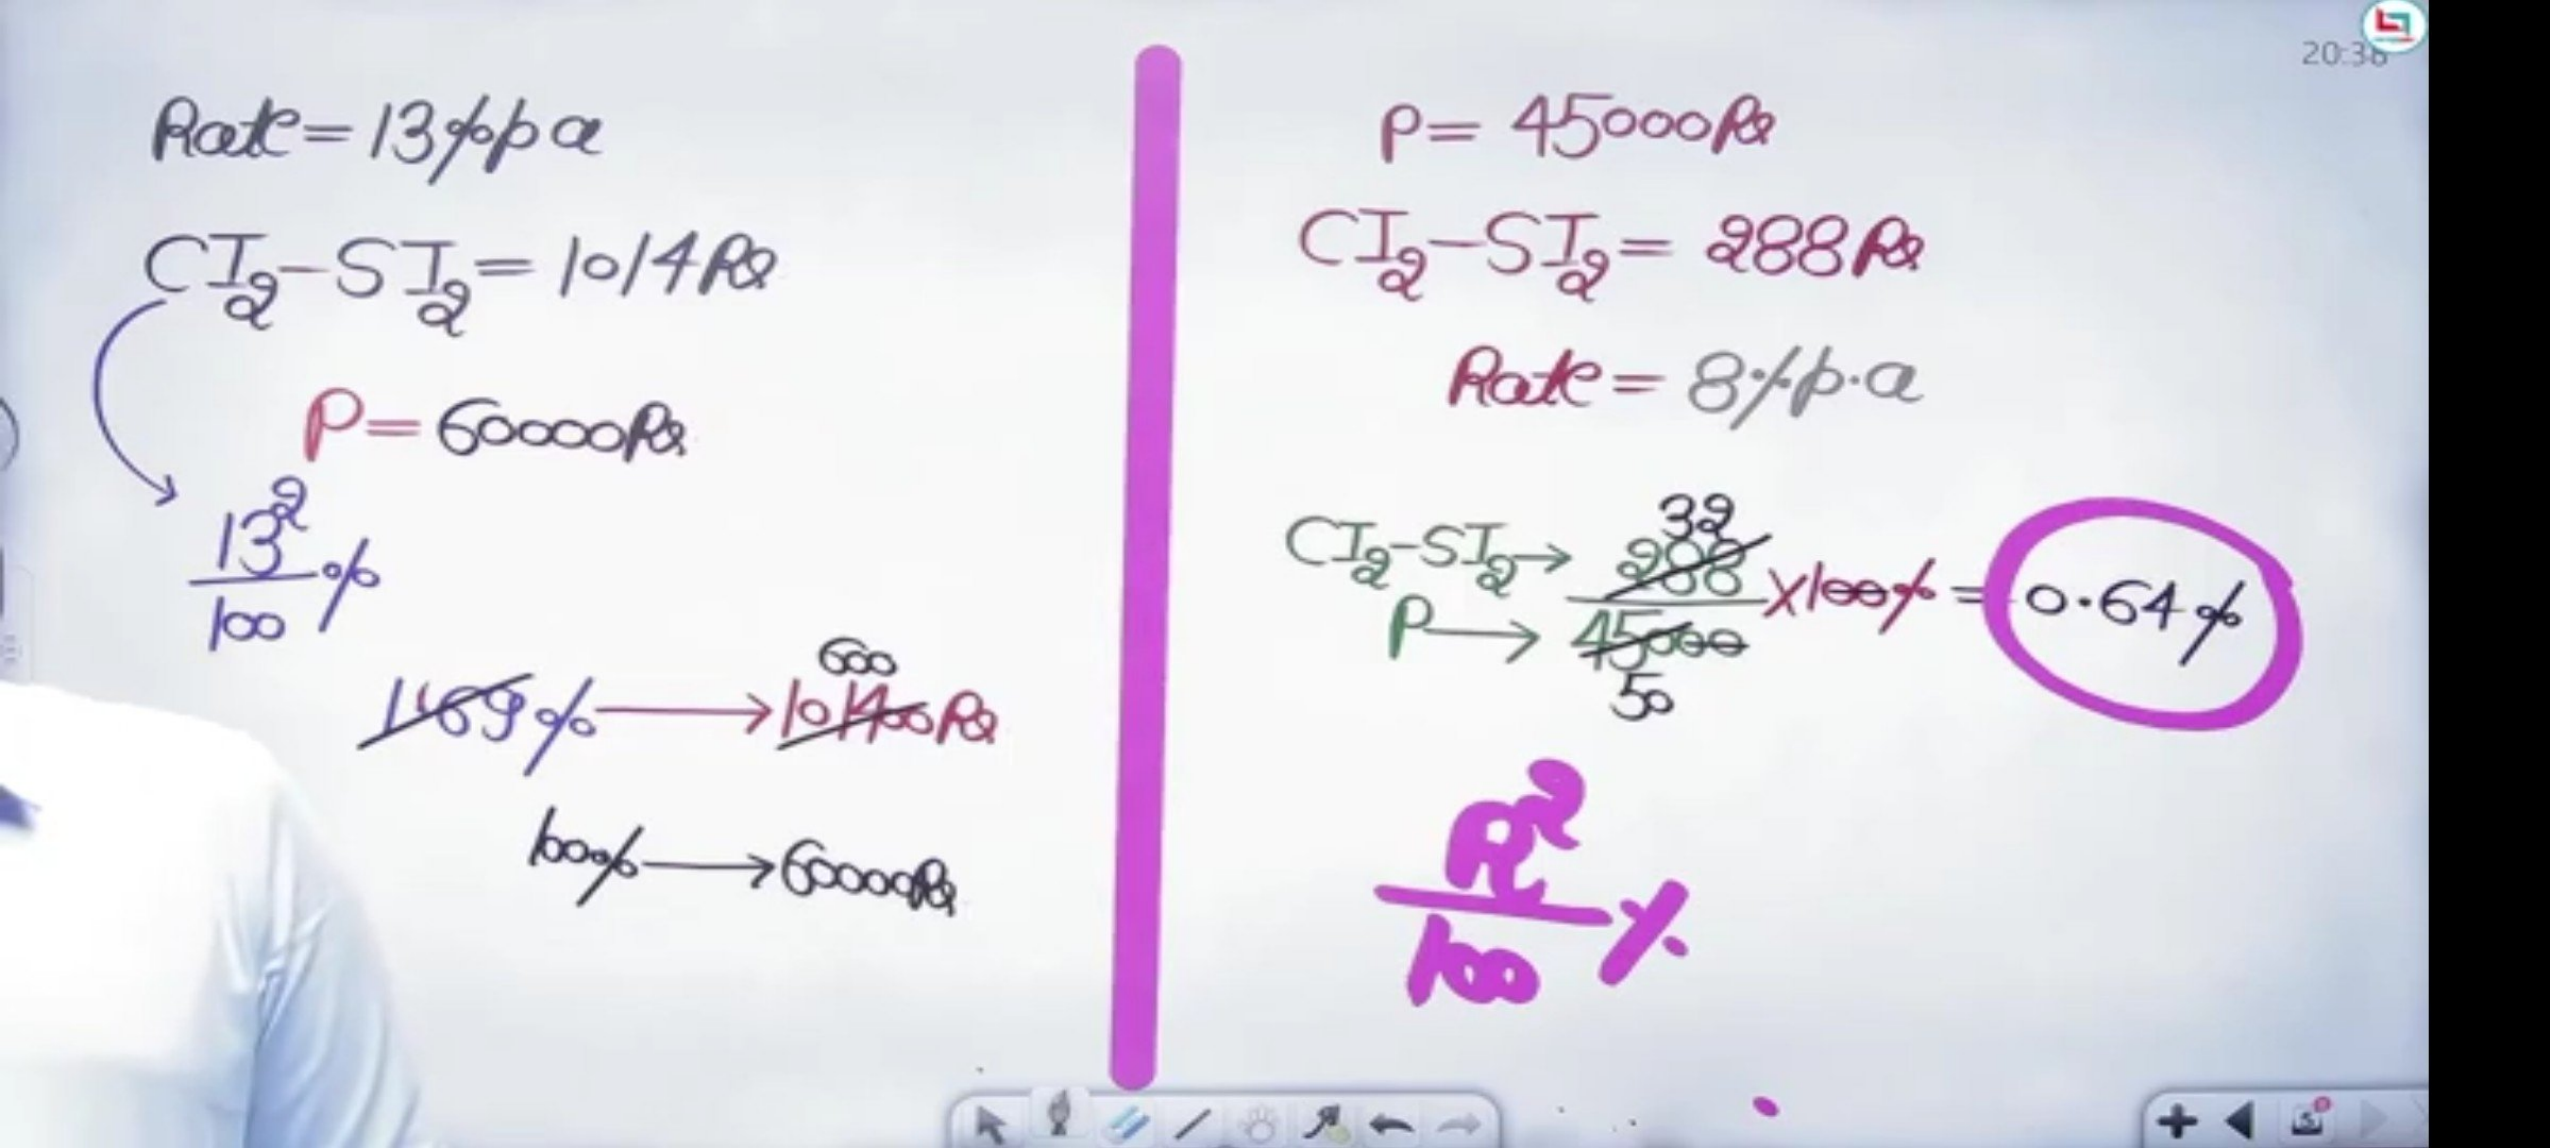 Rate = 13% p a
CI₂ - SI₂ = 1014 Rs
P = 60000 Rs
13²/100 %
169% → 101400 Rs
600
100% → 60000 Rs
P = 45000 Rs
CI₂ - SI₂ = 288 Rs
Rate = 8% p.a
32
CI₂ - SI₂ → 288
P → 45000
× 100% = 0.64%
50
R²/100 %